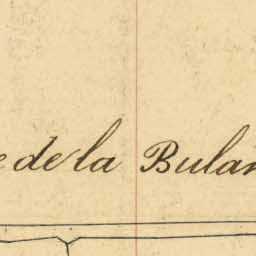 de la Bulan